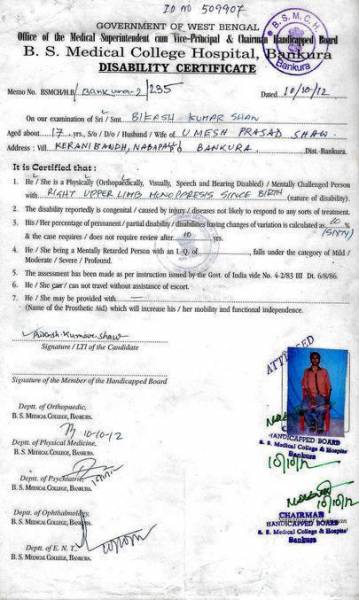 ID NO 509907
GOVERNMENT OF WEST BENGAL
Office of the Medical Superintendent cum Vice-Principal & Chairman Handicapped Board
B. S. Medical College Hospital, Bankura
DISABILITY CERTIFICATE
B. S. M. C. H.
Bankura
Memo No. BSMCH/H.B/ Bankura-2/235 Dated 10/10/12
On our examination of Sri / Smt. BIKASH KUMAR SHAW
Aged about 17 yrs. S/o / D/o / Husband / Wife of UMESH PRASAD SHAW
Address : Vill. KERANIBANDH, BANKURA Dist.-Bankura.
It is Certified that :
1. He / She is a Physically (Orthopaedically, Visually, Speech and Hearing Disabled) / Mentally Challenged Person
with RIGHT UPPER LIMB MONOPARESIS SINCE BIRTH (nature of disability).
2. The disability reportedly is congenital / caused by injury / diseases not likely to respond to any sorts of treatment.
3. His / Her percentage of permanent / partial disability / disabilities having chances of variation is calculated as %
& the case requires / does not require review after 10 yrs.
4. He / She being a Mentally Retarded Person with an I. Q. of , falls under the category of Mild /
Moderate / Severe / Profound.
5. The assessment has been made as per instruction issued by the Govt. of India vide No. 4-2/83 III Dt. 6/8/86.
6. He / She can / can not travel without assistance of escort.
7. He / She may be provided with —
(Name of the Prosthetic Aid) which will increase his / her mobility and functional independence.
Bikash Kumar Shaw
Signature / LTI of the Candidate
ATTESTED
Signature of the Member of the Handicapped Board
Deptt. of Orthopaedic,
B. S. MEDICAL COLLEGE, BANKURA.
10-10-12
Deptt. of Physical Medicine,
B. S. MEDICAL COLLEGE, BANKURA.
HANDICAPPED BOARD
B. S. Medical College & Hospital
Bankura
10/10/12
Deptt. of Psychiatric,
B. S. MEDICAL COLLEGE, BANKURA.
10/10/12
Deptt. of Ophthalmology,
B. S. MEDICAL COLLEGE, BANKURA.
CHAIRMAN
HANDICAPPED BOARD
B. S. Medical College & Hospital
Bankura
Deptt. of E. N. T.,
B. S. MEDICAL COLLEGE, BANKURA.